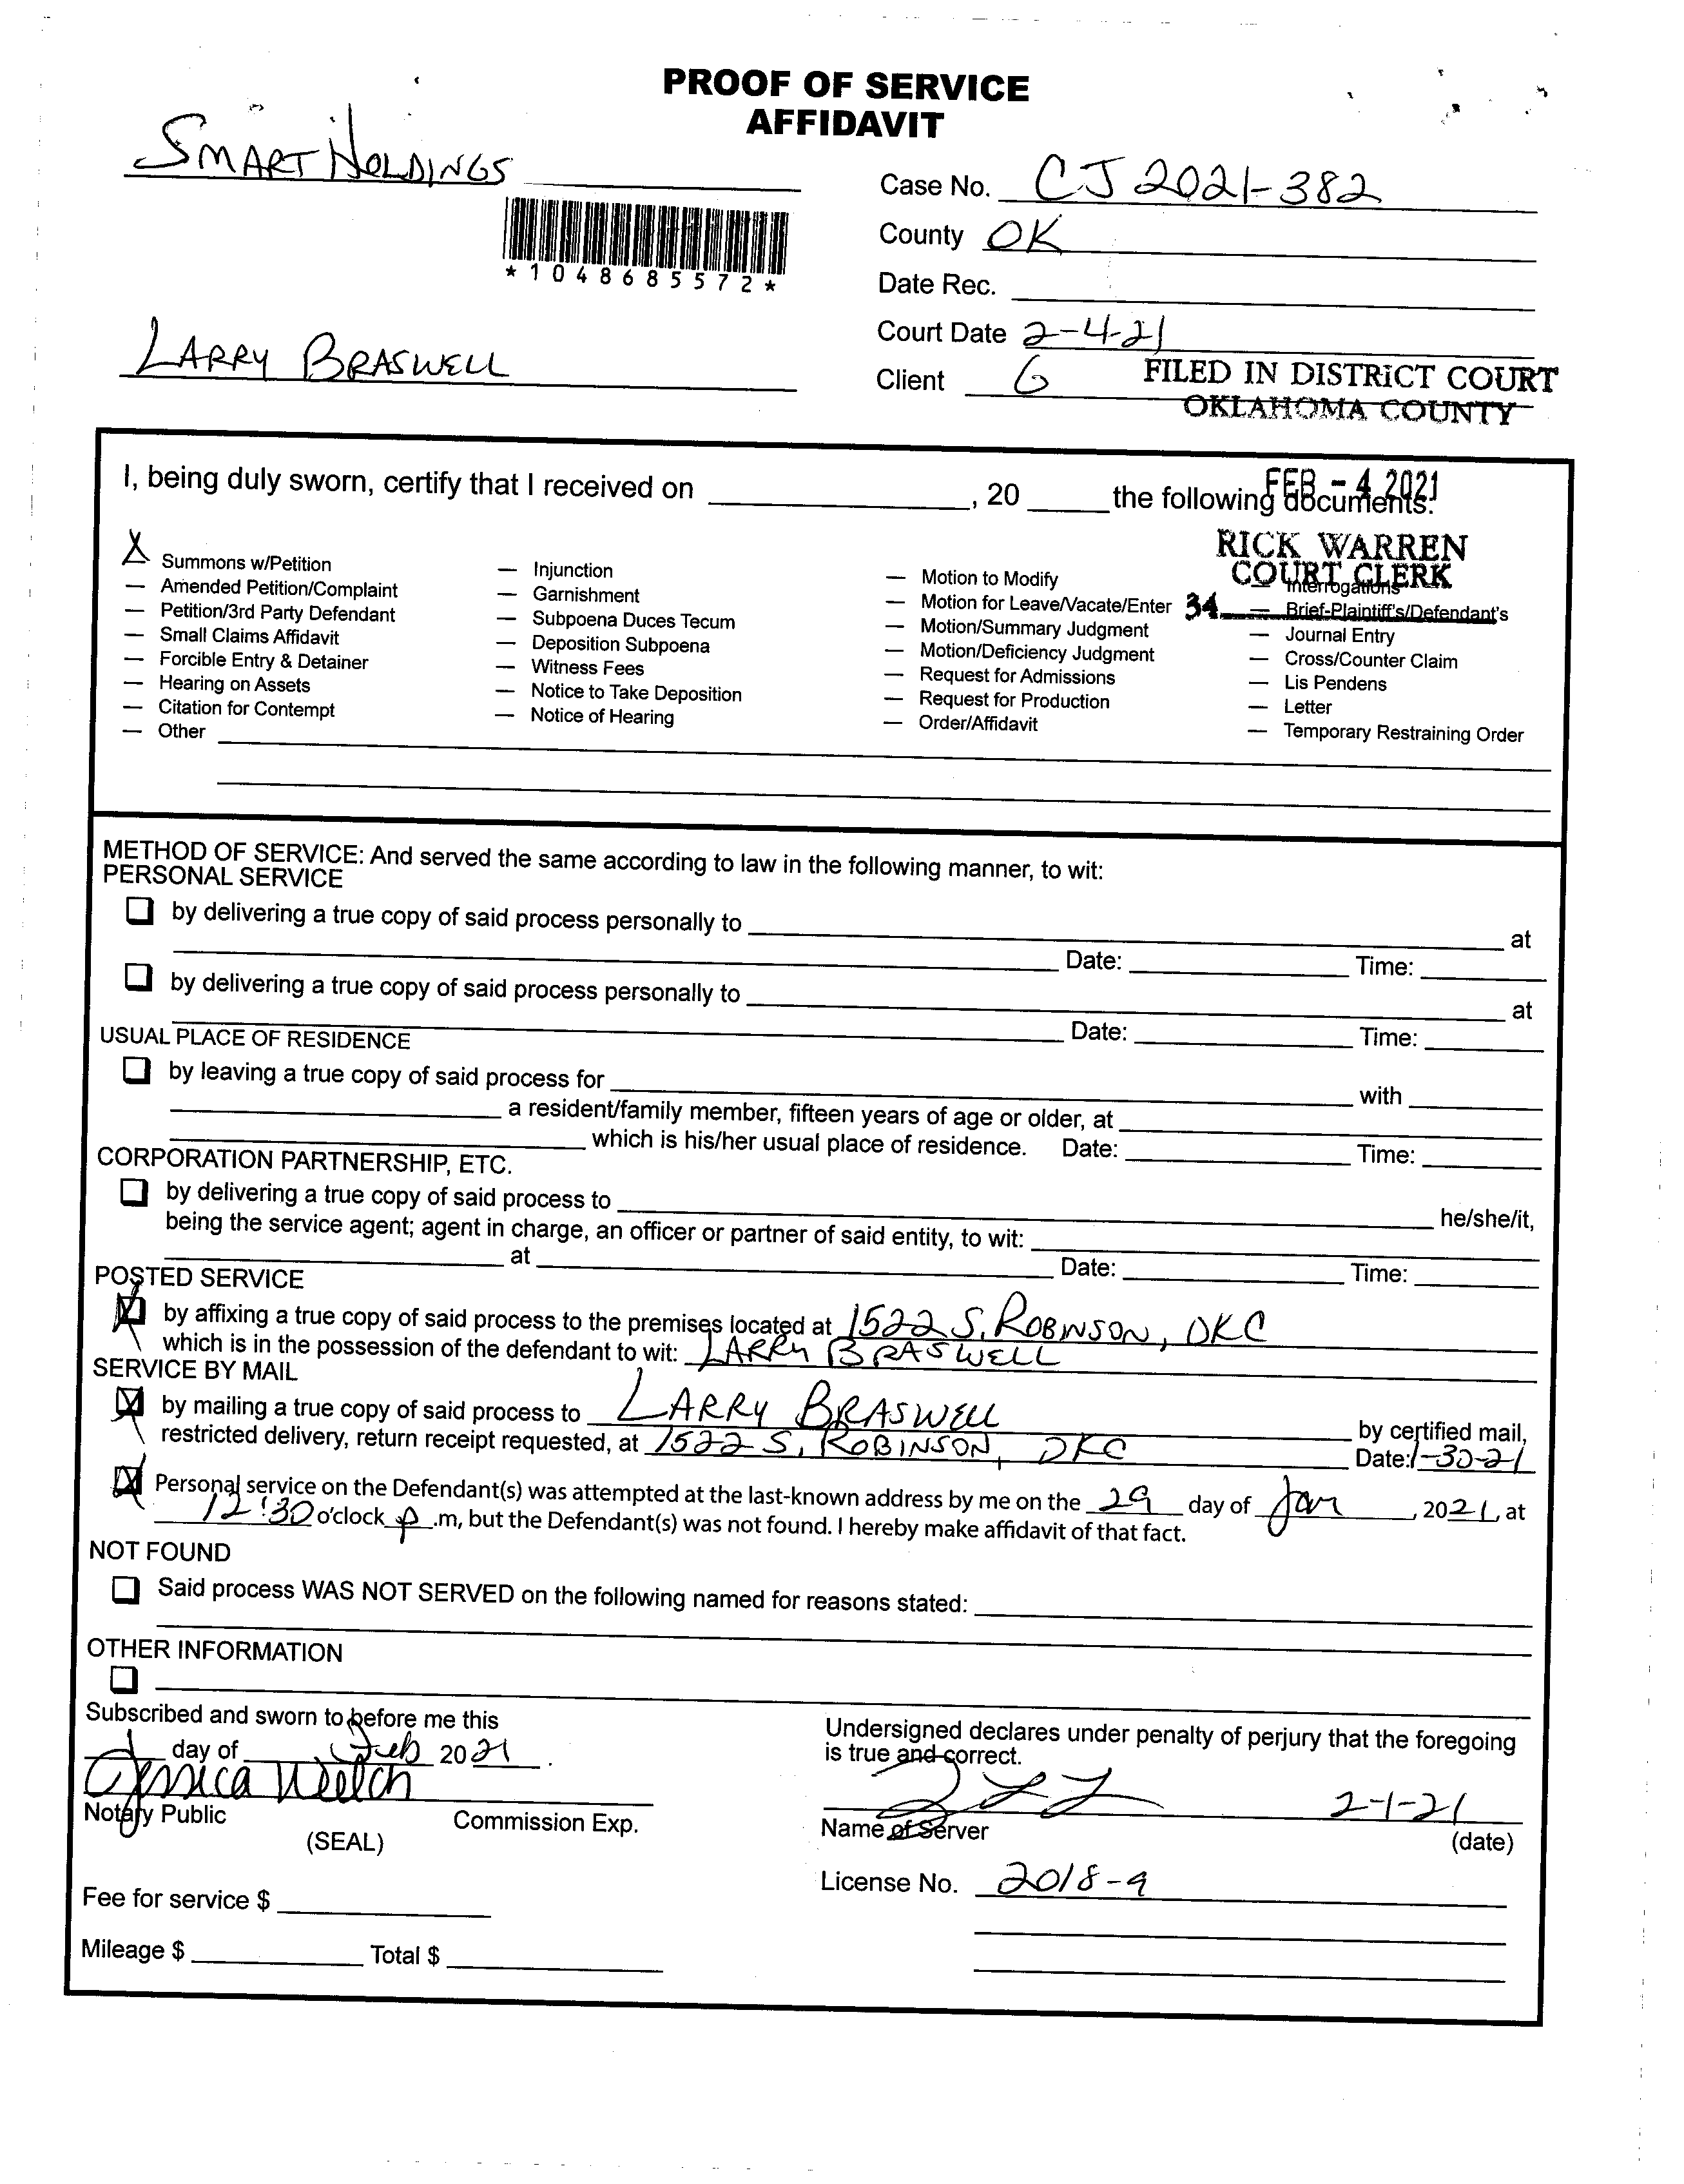 PROOF OF SERVICE
AFFIDAVIT
SMART HOLDINGS
Case No. CJ 2021-382
*1048685572*
County OK
Date Rec.
Court Date 2-4-21
LARRY BRASWELL
Client G
FILED IN DISTRICT COURT
OKLAHOMA COUNTY
I, being duly sworn, certify that I received on ____, 20 ____ the following documents:
FEB - 4 2021
RICK WARREN
COURT CLERK
34
X Summons w/Petition
— Amended Petition/Complaint
— Petition/3rd Party Defendant
— Small Claims Affidavit
— Forcible Entry & Detainer
— Hearing on Assets
— Citation for Contempt
— Other
— Injunction
— Garnishment
— Subpoena Duces Tecum
— Deposition Subpoena
— Witness Fees
— Notice to Take Deposition
— Notice of Hearing
— Motion to Modify
— Motion for Leave/Vacate/Enter
— Motion/Summary Judgment
— Motion/Deficiency Judgment
— Request for Admissions
— Request for Production
— Order/Affidavit
— Interrogations
— Brief-Plaintiff's/Defendant's
— Journal Entry
— Cross/Counter Claim
— Lis Pendens
— Letter
— Temporary Restraining Order
METHOD OF SERVICE: And served the same according to law in the following manner, to wit:
PERSONAL SERVICE
by delivering a true copy of said process personally to ____ at
Date: ____ Time: ____
by delivering a true copy of said process personally to ____ at
Date: ____ Time: ____
USUAL PLACE OF RESIDENCE
by leaving a true copy of said process for ____ with ____
____ a resident/family member, fifteen years of age or older, at ____
____ which is his/her usual place of residence. Date: ____ Time: ____
CORPORATION PARTNERSHIP, ETC.
by delivering a true copy of said process to ____ he/she/it,
being the service agent; agent in charge, an officer or partner of said entity, to wit: ____
____ at ____ Date: ____ Time: ____
POSTED SERVICE
by affixing a true copy of said process to the premises located at 1522 S. ROBINSON, OKC
which is in the possession of the defendant to wit: LARRY BRASWELL
SERVICE BY MAIL
by mailing a true copy of said process to LARRY BRASWELL by certified mail,
restricted delivery, return receipt requested, at 1522 S. ROBINSON, OKC Date: 1-30-21
Personal service on the Defendant(s) was attempted at the last-known address by me on the 29 day of Jan, 2021, at
12:30 o'clock p.m, but the Defendant(s) was not found. I hereby make affidavit of that fact.
NOT FOUND
Said process WAS NOT SERVED on the following named for reasons stated:
OTHER INFORMATION
Subscribed and sworn to before me this
day of Feb 2021.
Jessica Welch
Notary Public Commission Exp.
(SEAL)
Fee for service $
Mileage $ ____ Total $
Undersigned declares under penalty of perjury that the foregoing
is true and correct.
2-1-21
Name of Server (date)
License No. 2018-9